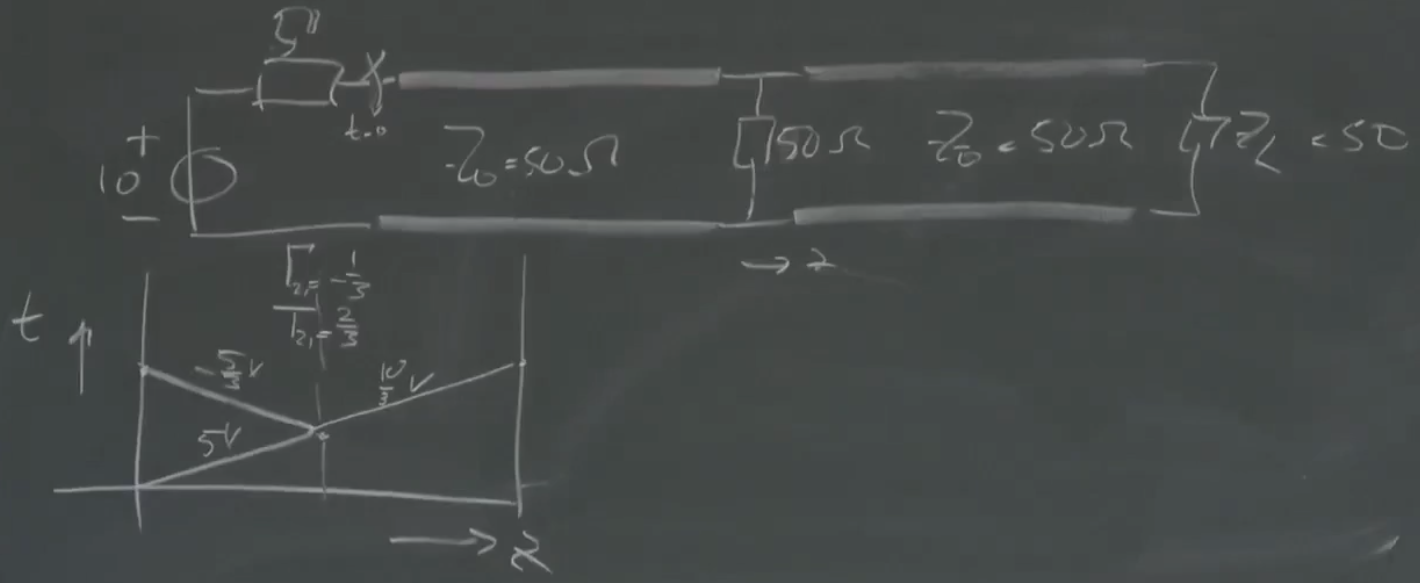 t=0
+
10
−
Z₀ = 50 Ω
50 Ω
Z₀ = 50 Ω
Z_L = 50
→ z
Γ₂₁ = -1/3
T₂₁ = 2/3
t ↑
-5/3 V
10/3 V
5V
→ z